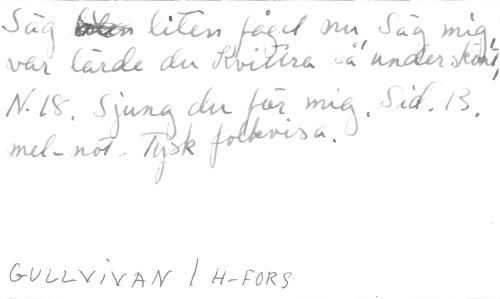 Säg liten fågel nu Säg mig,
var lärde du kvittra så underskönt,
N. 18. Sjung du för mig. Sid. 13.
mel-not- Tysk folkvisa.
GULLVIVAN / H-FORS